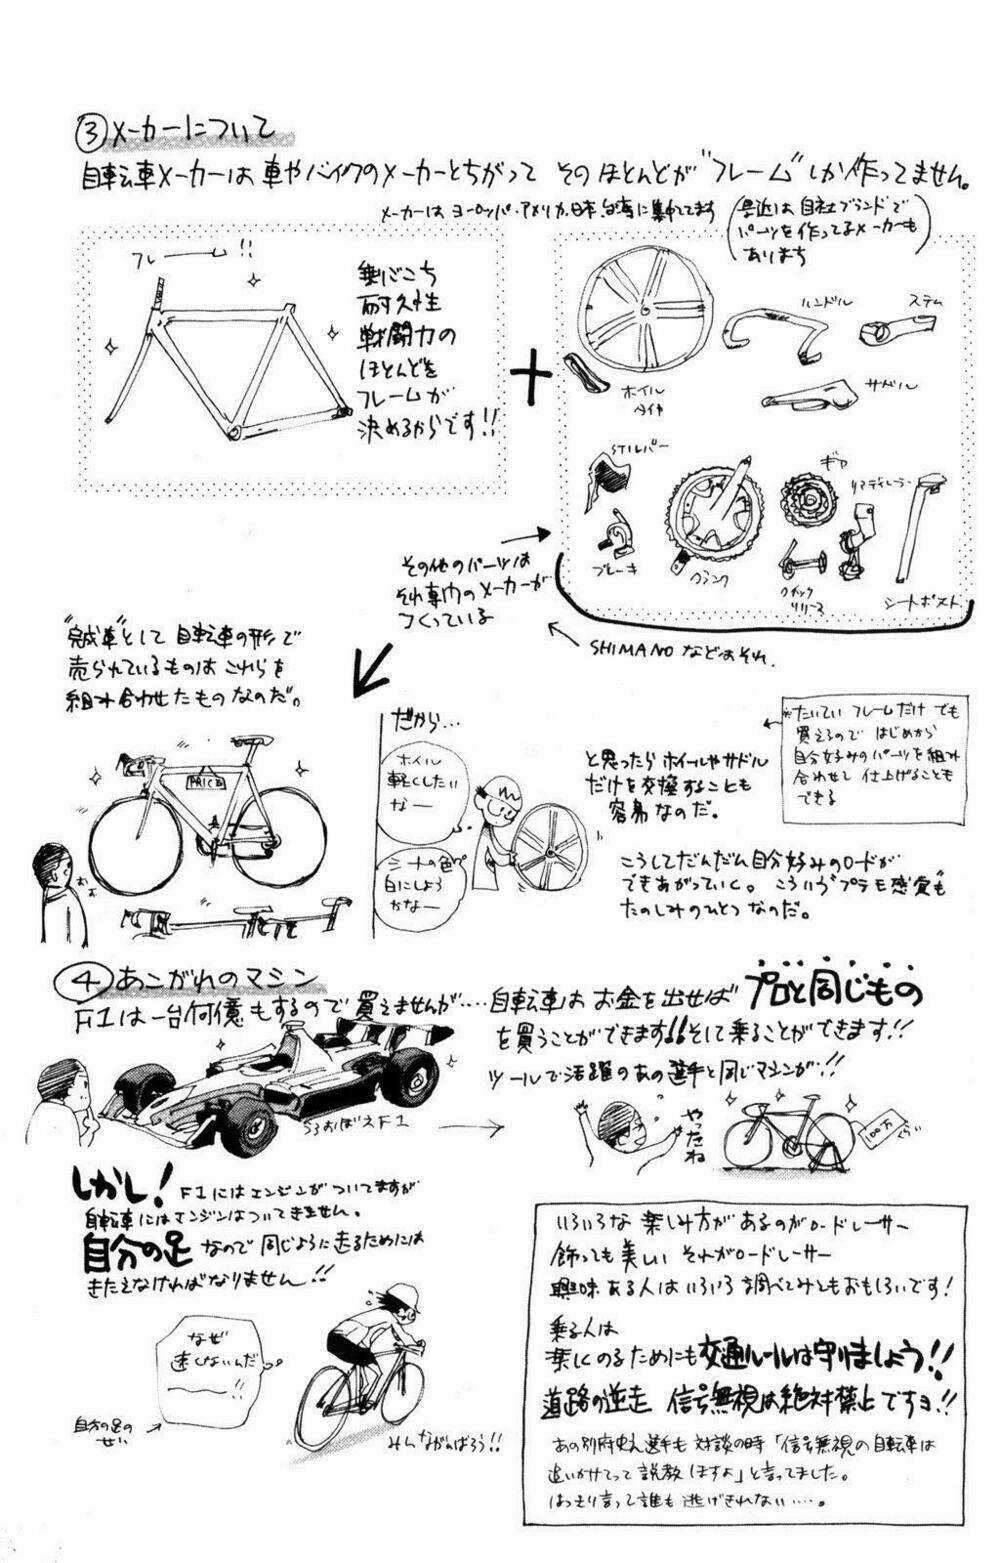 ③メーカーについて
自転車メーカーは車やバイクのメーカーとちがって そのほとんどが"フレーム"しか作ってません。
メーカーは ヨーロッパ・アメリカ・日本・台湾に集中してます
(最近は自社ブランドで
パーツを作ってるメーカーも
ありまち)
フレーム!!
乗りごこち
耐久性
戦闘力の
ほとんどを
フレームが
決めるからです!!
+
ホイル
タイヤ
ハンドル
ステム
サドル
STIレバー
ギア
リアディレーラー
ブレーキ
クランク
クイック
リリース
シートポスト
その他のパーツは
それ専門のメーカーが
つくっている
SHIMANOなどはそれ。
"完成車"として自転車の形で
売られているものはこれらを
組み合わせたものなのだ。
PRICE
だから…
ホイル
軽くしたい
なー
シートの色
白にしよう
かなー
と思ったらホイルやサドル
だけを交換することも
容易なのだ。
*たいてい フレームだけでも
買えるので はじめから
自分好みのパーツを組み
合わせて 仕上げることも
できる
こうしてだんだん自分好みのロードが
できあがっていく。こういう"プラモ感覚"も
たのしみのひとつなのだ。
④あこがれのマシン
F1は一台何億もするので買えませんが…‥自転車はお金を出せば プロと同じもの
を買うことができます!!そして乗ることができます!!
ツールで活躍のあの選手と同じマシンが!!
うろおぼえF1
やったね
100万
くらい
しかし! F1にはエンジンがついてますが
自転車にはエンジンはついてきません。
自分の足なので 同じように走るためには
きたえなければなりません!!
なぜ
速くないんだ
ーー!!
自分の足の
せい
みんながんばろう!!
いろいろな 楽しみ方があるのがロードレーサー
飾っても美しい それがロードレーサー
興味ある人は いろいろ調べてみてもおもしろいです!
乗る人は
楽しくのるためにも交通ルールは守りましょう!!
道路の逆走 信号無視は絶対禁止ですヨ!!
あの別府史之選手も 対談の時「信号無視の自転車は
追いかけてって説教しますよ」と言ってました。
はっきり言って誰も逃げきれない…‥。